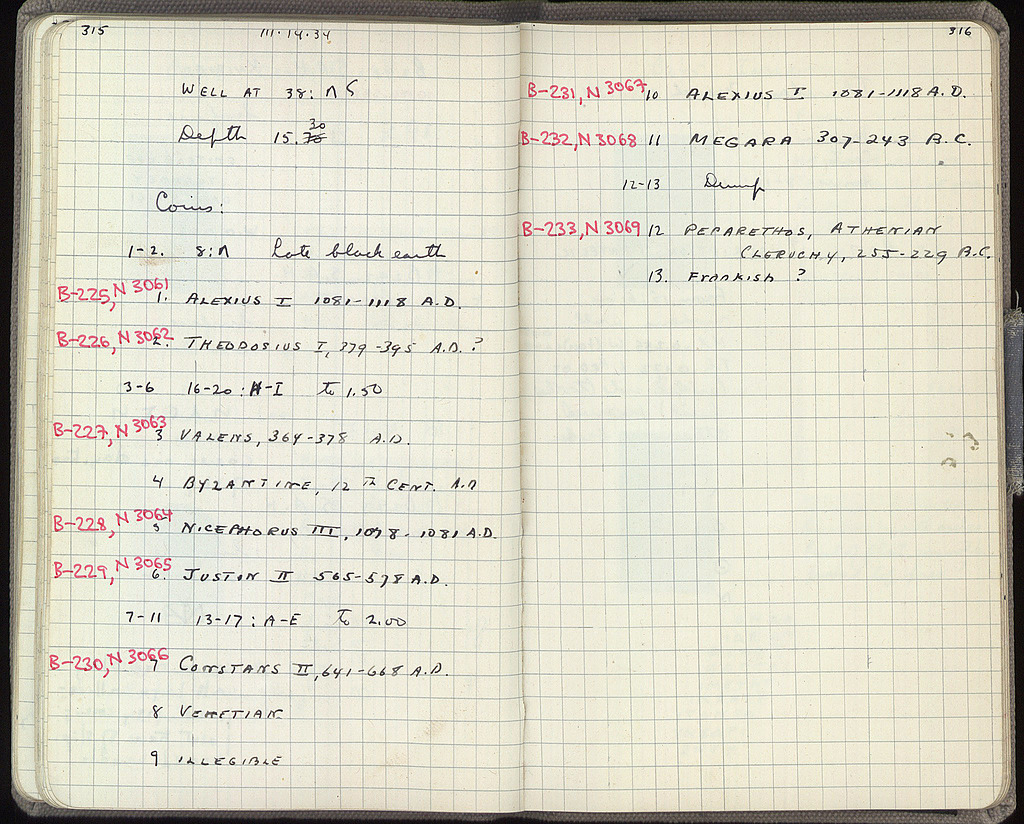 315
III·14·34
WELL AT 38: ΛS
Depth 15.30
Coins:
1-2. 8:Λ Late black earth
B-225, N 3061 1. ALEXIUS I 1081-1118 A.D.
B-226, N 3062 2. THEODOSIUS I, 379-395 A.D.?
3-6 16-20: H-I To 1.50
B-227, N 3063 3 VALENS, 364-378 A.D.
4 BYZANTINE, 12 TH CENT. A.D
B-228, N 3064 5 NICEPHORUS III, 1078-1081 A.D.
B-229, N 3065 6. JUSTIN II 565-578 A.D.
7-11 13-17: A-E To 2.00
B-230, N 3066 7 CONSTANS II, 641-668 A.D.
8 VENETIAN
9 ILLEGIBLE
316
B-231, N 3067 10 ALEXIUS I 1081-1118 A.D.
B-232, N 3068 11 MEGARA 307-243 B.C.
12-13 Dump
B-233, N 3069 12 PEPARETHOS, ATHENIAN
CLERUCHY, 255-229 B.C.
13. FRANKISH ?